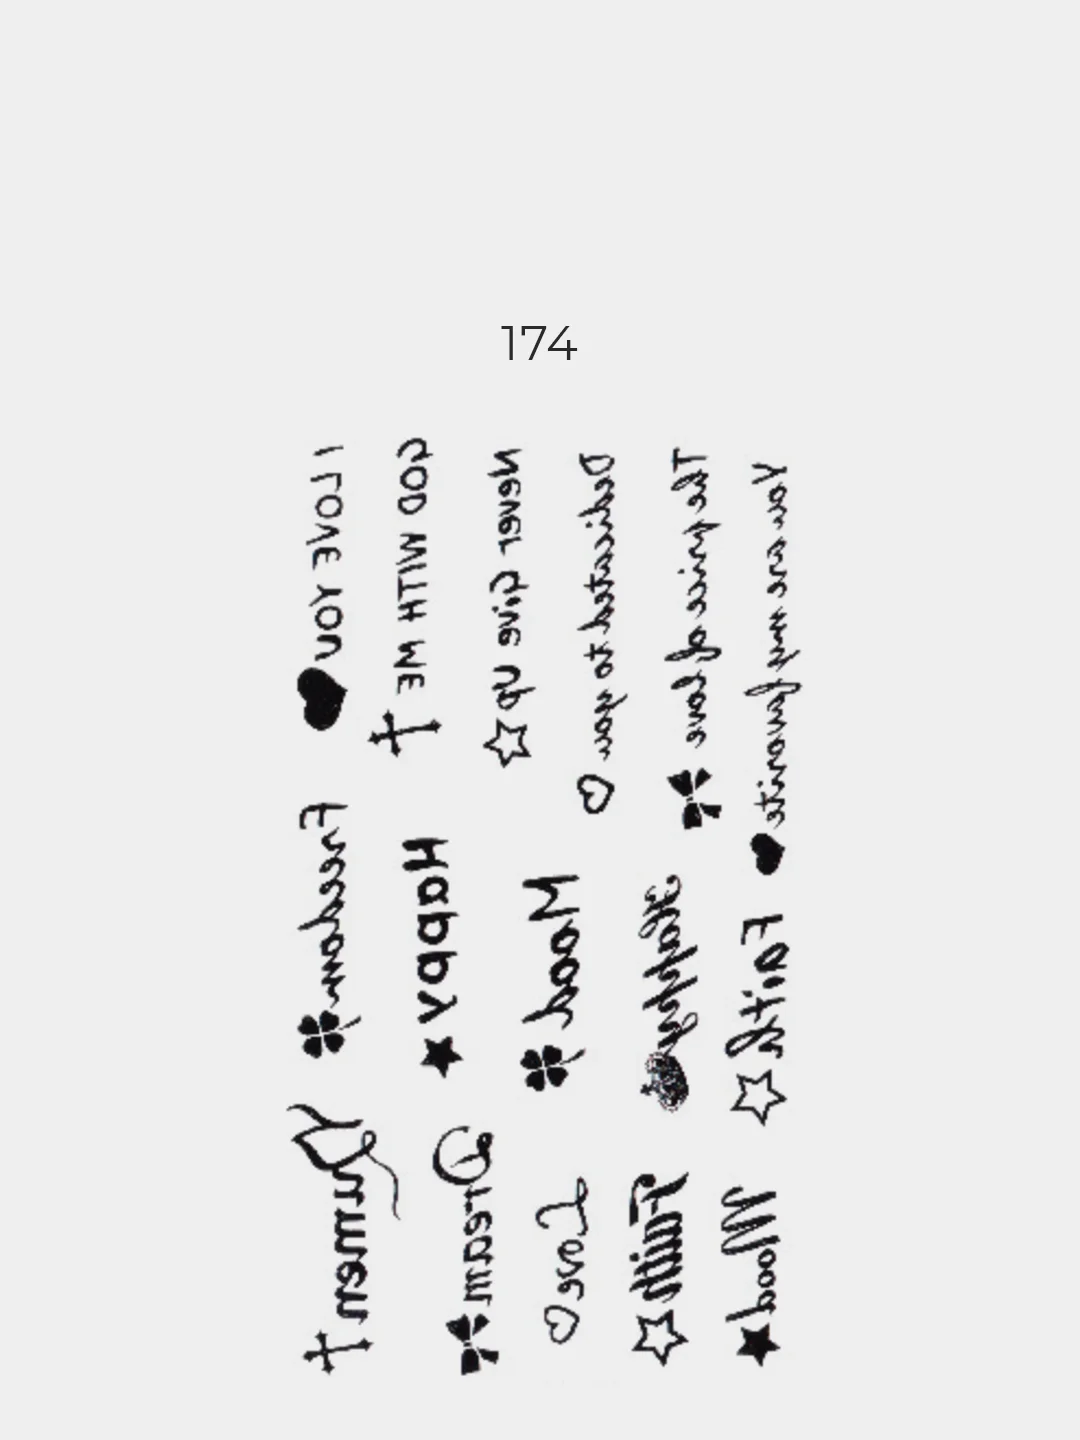 174
I LOVE YOU
GOD WITH ME
Never Give Up
Dedicated to you
The price of love
You are my favourite
Freedom
Happy
Mood
Happy
Faith
Numen
Dream
Love
Faith
Mood